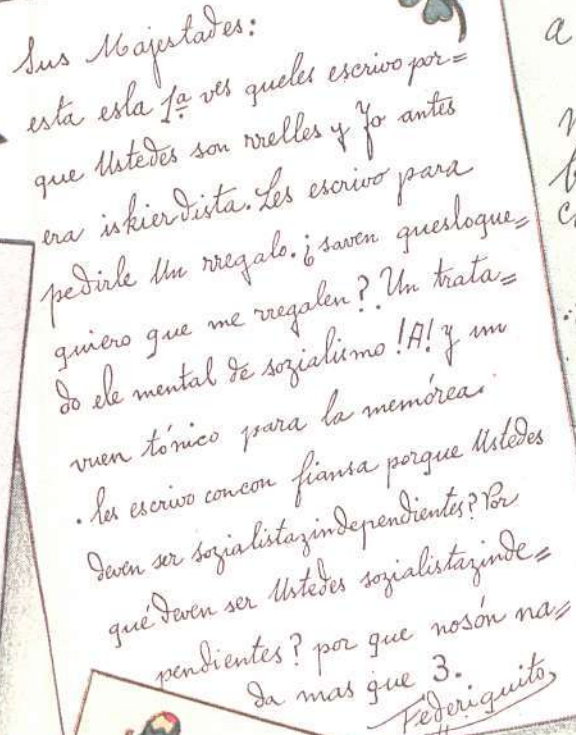 Sus Majestades:
esta esla 1ª ves queles escrivo por=
que Ustedes son rrelles y Yo antes
era iskierdista. Les escrivo para
pedirle Un rregalo. ¿saven quesloque=
quiero que me rregalen? Un trata=
do ele mental de sozialismo !A! y un
vuen tónico para la memórea.
. les escrivo concon fiansa porque Ustedes
deven ser sozialistazindependientes? Por
qué deven ser Ustedes sozialistazinde=
pendientes? por que nosón na=
da mas que 3.
Federiquito
a